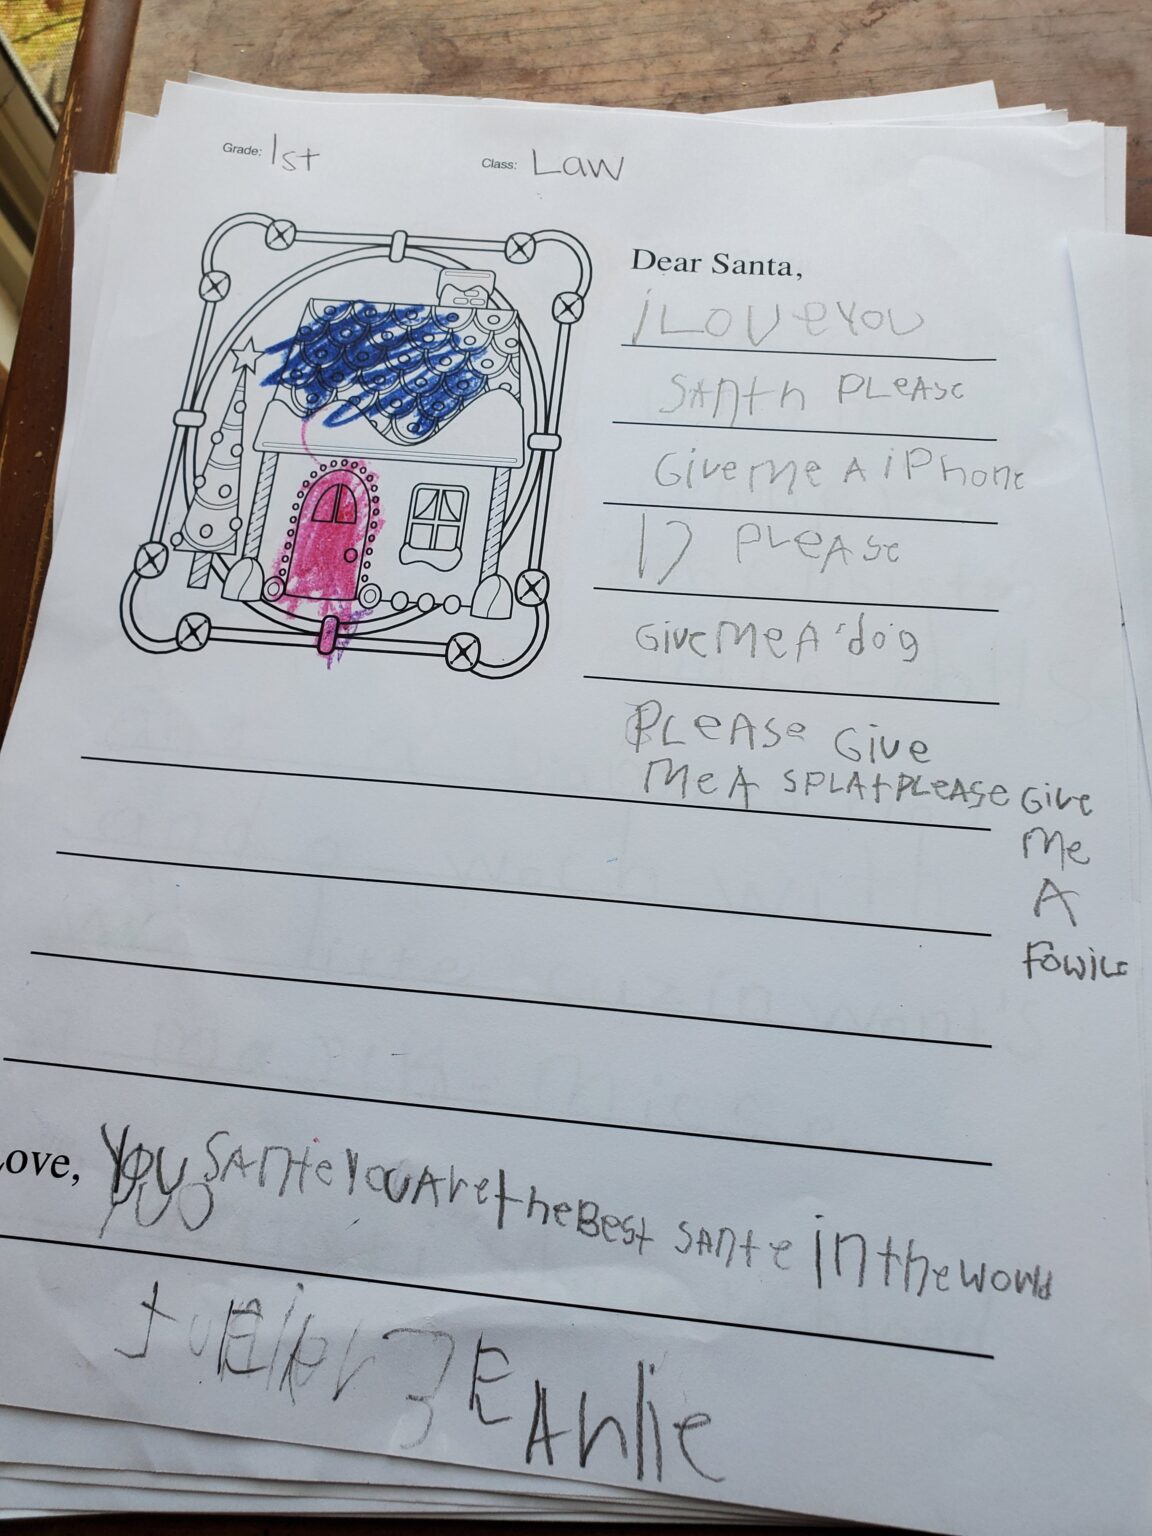 Grade: 1st
Class: Law
Dear Santa,
i LOVe YOU
SAnth PLeASe
GiveMe A iPhone
17 PLeASe
GiveMeA dog
PLeASe Give
MeA SPLAt PLeASe Give
Me
A
Love, You SAnte YoU Are the Best SAnte in the world
you
EArlie